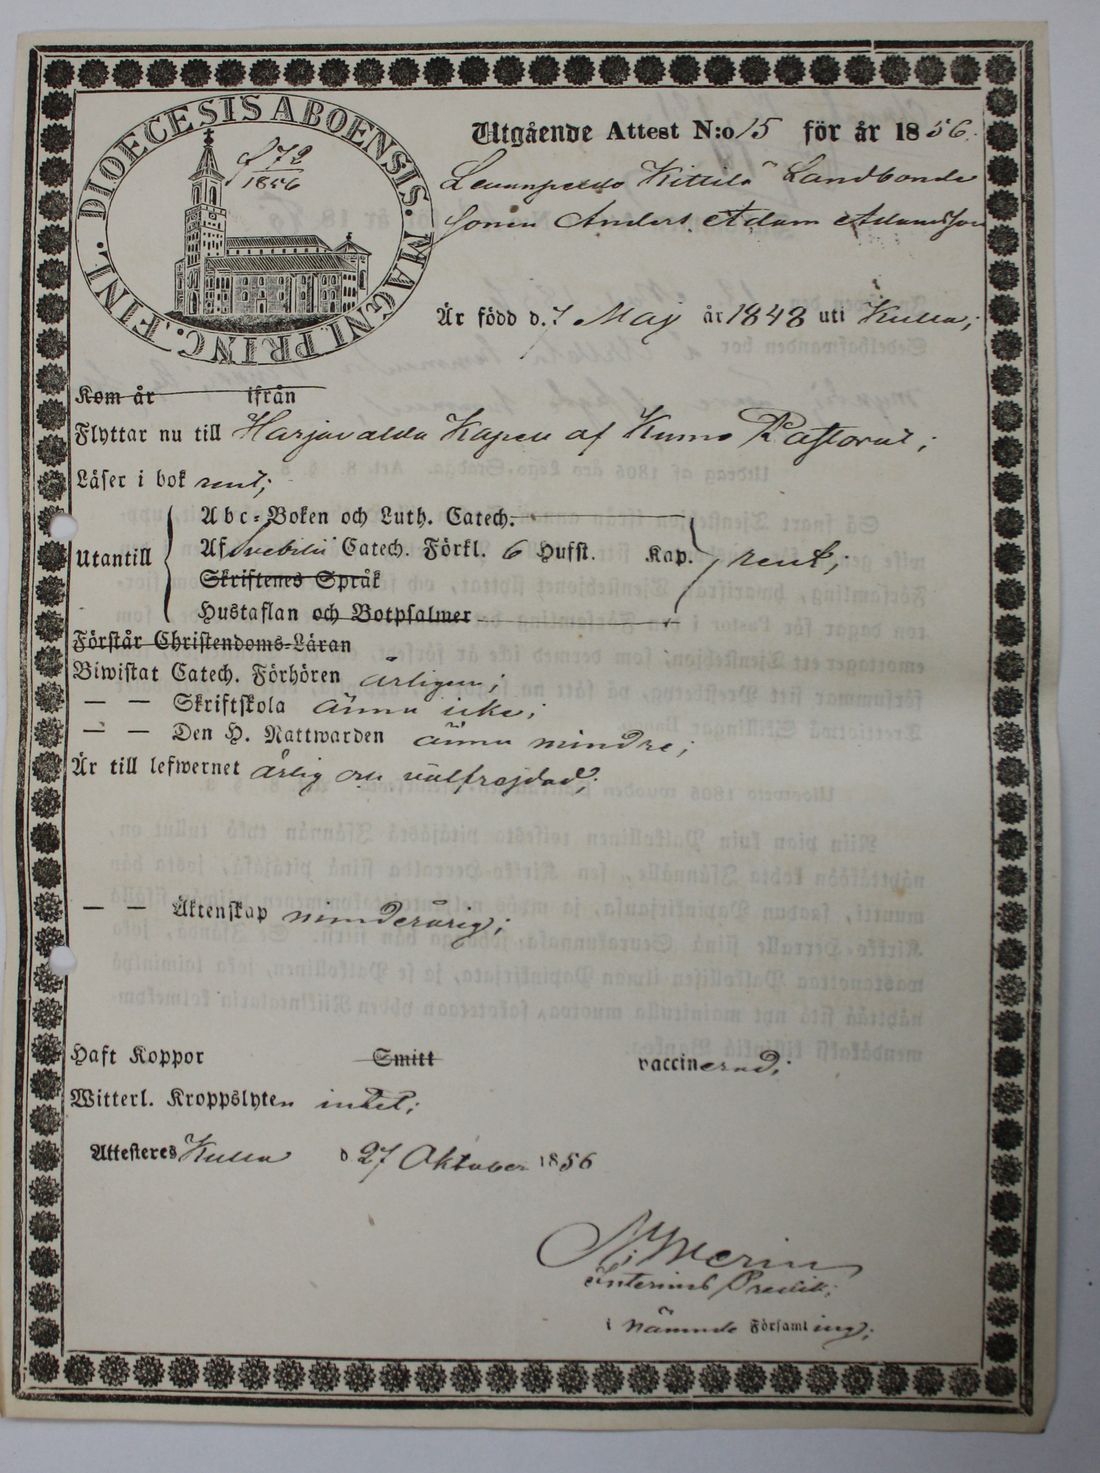 DIOECESIS ABOENSIS. MAGNI. PRINC. FINL.
72
1856
Utgående Attest N:o 15 för år 1856.
Kittilä Landbonde
Sonen Anders Adam Adamsson
Är född d. 7 Maj år 1848 uti Kulla;
Kom år ifrån
Flyttar nu till Harjavalda Kapell af Kumo Pastorat;
Läser i bok rent;
Utantill
Abc-Boken och Luth. Catech.
Af Svebilii Catech. Förkl. 6 Hufst. Kap. rent;
Skriftenes Språk
Hustaflan och Botpsalmer
Förstår Christendoms-Läran
Biwistat Catech. Förhören årligen;
— — Skriftskola ännu icke;
— — Den H. Nattwarden ännu mindre;
Är till lefwernet ärlig och välfrejdad;
— — Äktenskap minderårig;
Haft Koppor Smitt vaccinerad;
Witterl. Kroppslyten intet;
Attesteres Kulla d 27 Oktober 1856
Interims Predik:
i nämnde Församling;